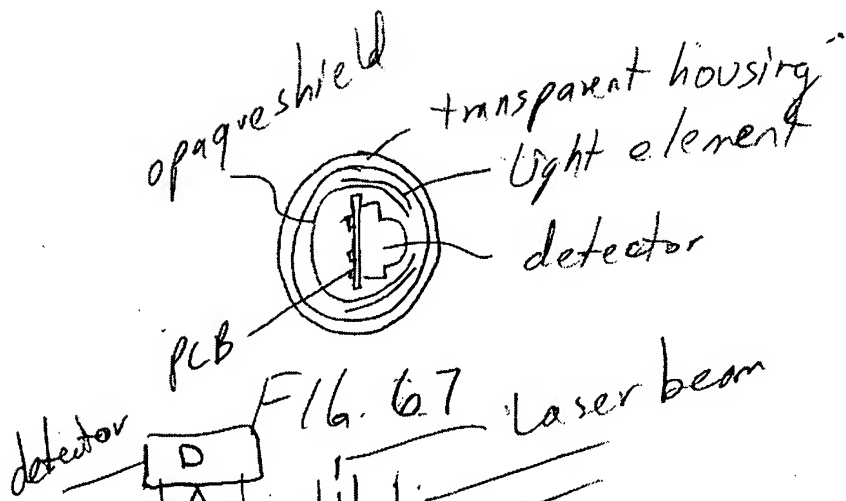 opaque shield
transparent housing
light element
detector
PCB
FIG. 67
Laser beam
detector
D